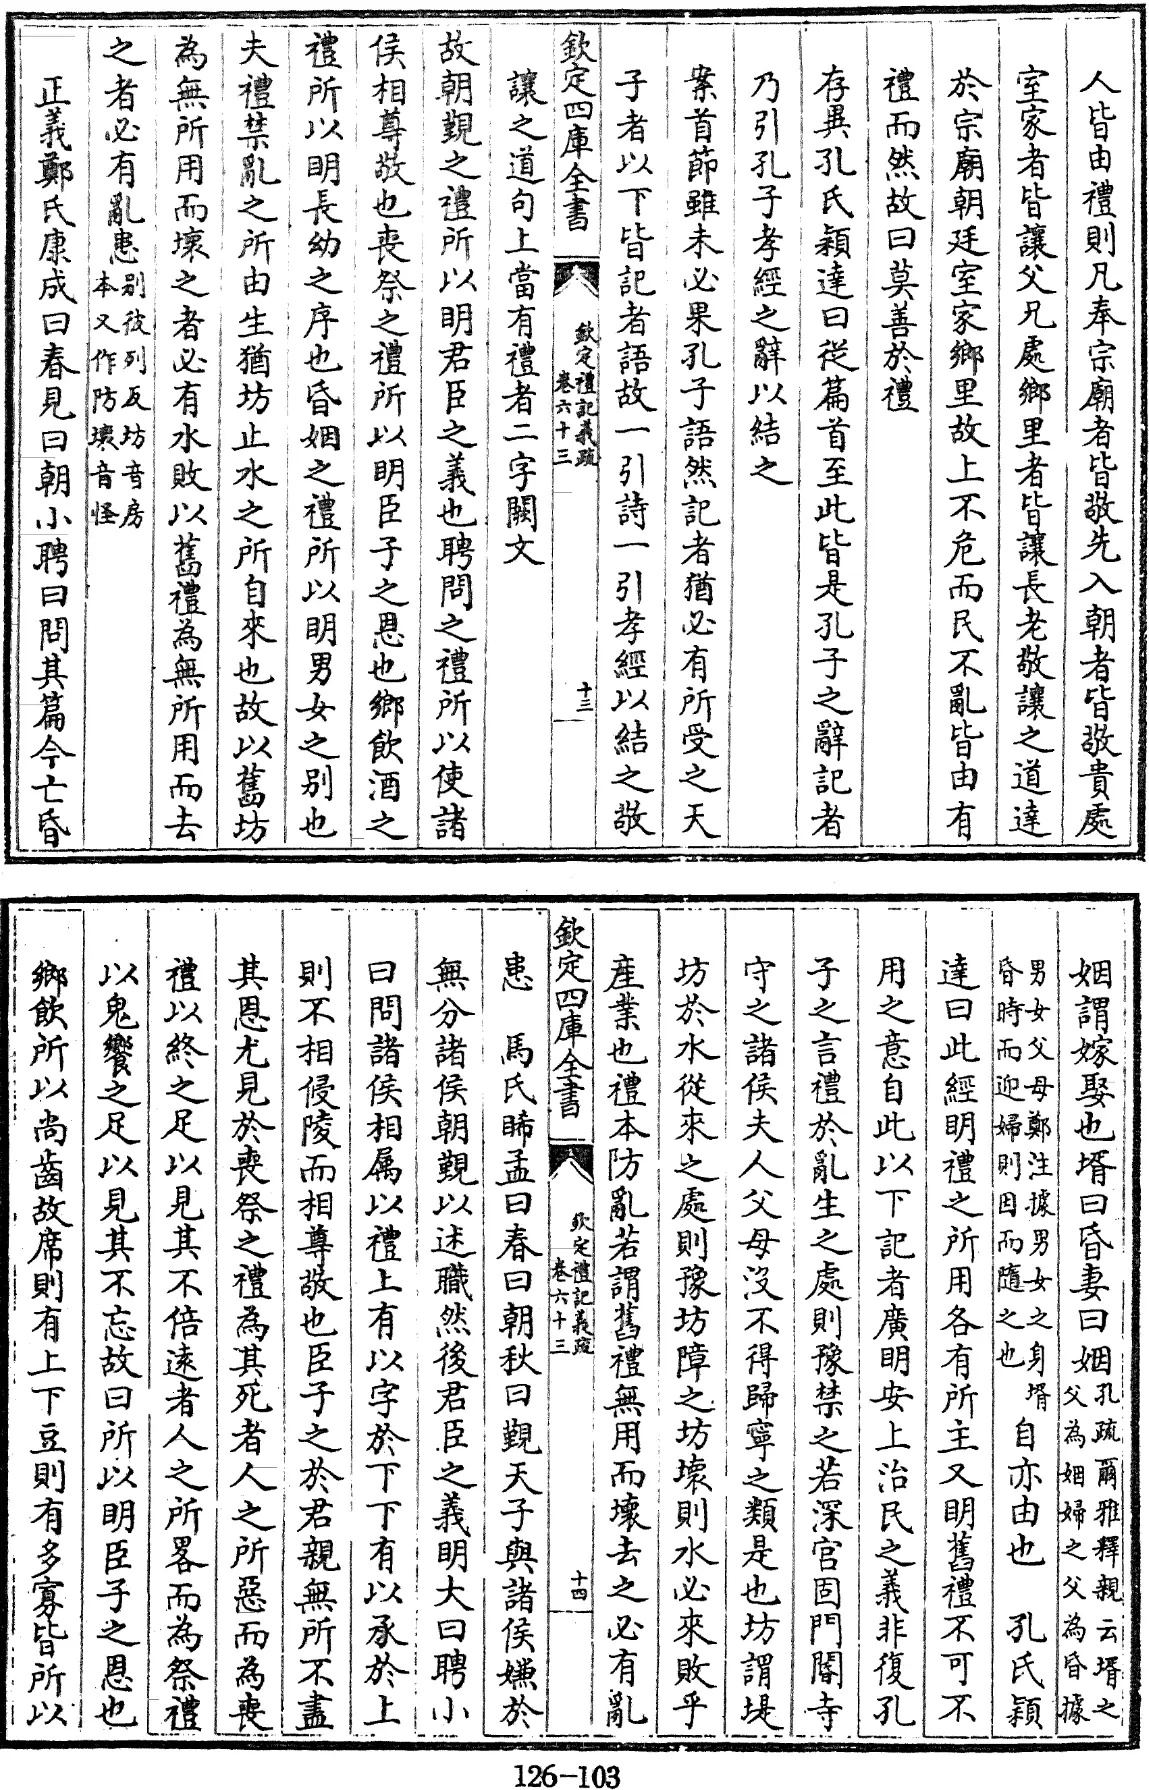 人皆由禮則凡奉宗廟者皆敬先入朝者皆敬貴處
室家者皆讓父兄處鄉里者皆讓長老敬讓之道達
於宗廟朝廷室家鄉里故上不危而民不亂皆由有
禮而然故曰莫善於禮
存異孔氏穎達曰從篇首至此皆是孔子之辭記者
乃引孔子孝經之辭以結之
案首節雖未必果孔子語然記者猶必有所受之天
子者以下皆記者語故一引詩一引孝經以結之敬
欽定四庫全書
欽定禮記義疏
卷六十三
十三
讓之道句上當有禮者二字闕文
故朝覲之禮所以明君臣之義也聘問之禮所以使諸
侯相尊敬也喪祭之禮所以明臣子之恩也鄉飲酒之
禮所以明長幼之序也昏姻之禮所以明男女之别也
夫禮禁亂之所由生猶坊止水之所自來也故以舊坊
為無所用而壞之者必有水敗以舊禮為無所用而去
之者必有亂患别彼列反坊音房
本又作防壞音怪
正義鄭氏康成曰春見曰朝小聘曰問其篇今亡昏
姻謂嫁娶也壻曰昏妻曰姻孔疏爾雅釋親云壻之
父為姻婦之父為昏據
男女父母鄭注據男女之身壻
昏時而迎婦則因而隨之也自亦由也　孔氏穎
達曰此經明禮之所用各有所主又明舊禮不可不
用之意自此以下記者廣明安上治民之義非復孔
子之言禮於亂生之處則豫禁之若深宫固門閽寺
守之諸侯夫人父母沒不得歸寧之類是也坊謂堤
坊於水從來之處則豫坊障之坊壞則水必來敗乎
產業也禮本防亂若謂舊禮無用而壞去之必有亂
欽定四庫全書
欽定禮記義疏
卷六十三
十四
患　馬氏睎孟曰春曰朝秋曰覲天子與諸侯嫌於
無分諸侯朝覲以述職然後君臣之義明大曰聘小
曰問諸侯相属以禮上有以字於下下有以承於上
則不相侵陵而相尊敬也臣子之於君親無所不盡
其恩尤見於喪祭之禮為其死者人之所惡而為喪
禮以終之足以見其不倍遠者人之所畧而為祭禮
以鬼饗之足以見其不忘故曰所以明臣子之恩也
鄉飲所以尚齒故席則有上下豆則有多寡皆所以
126-103